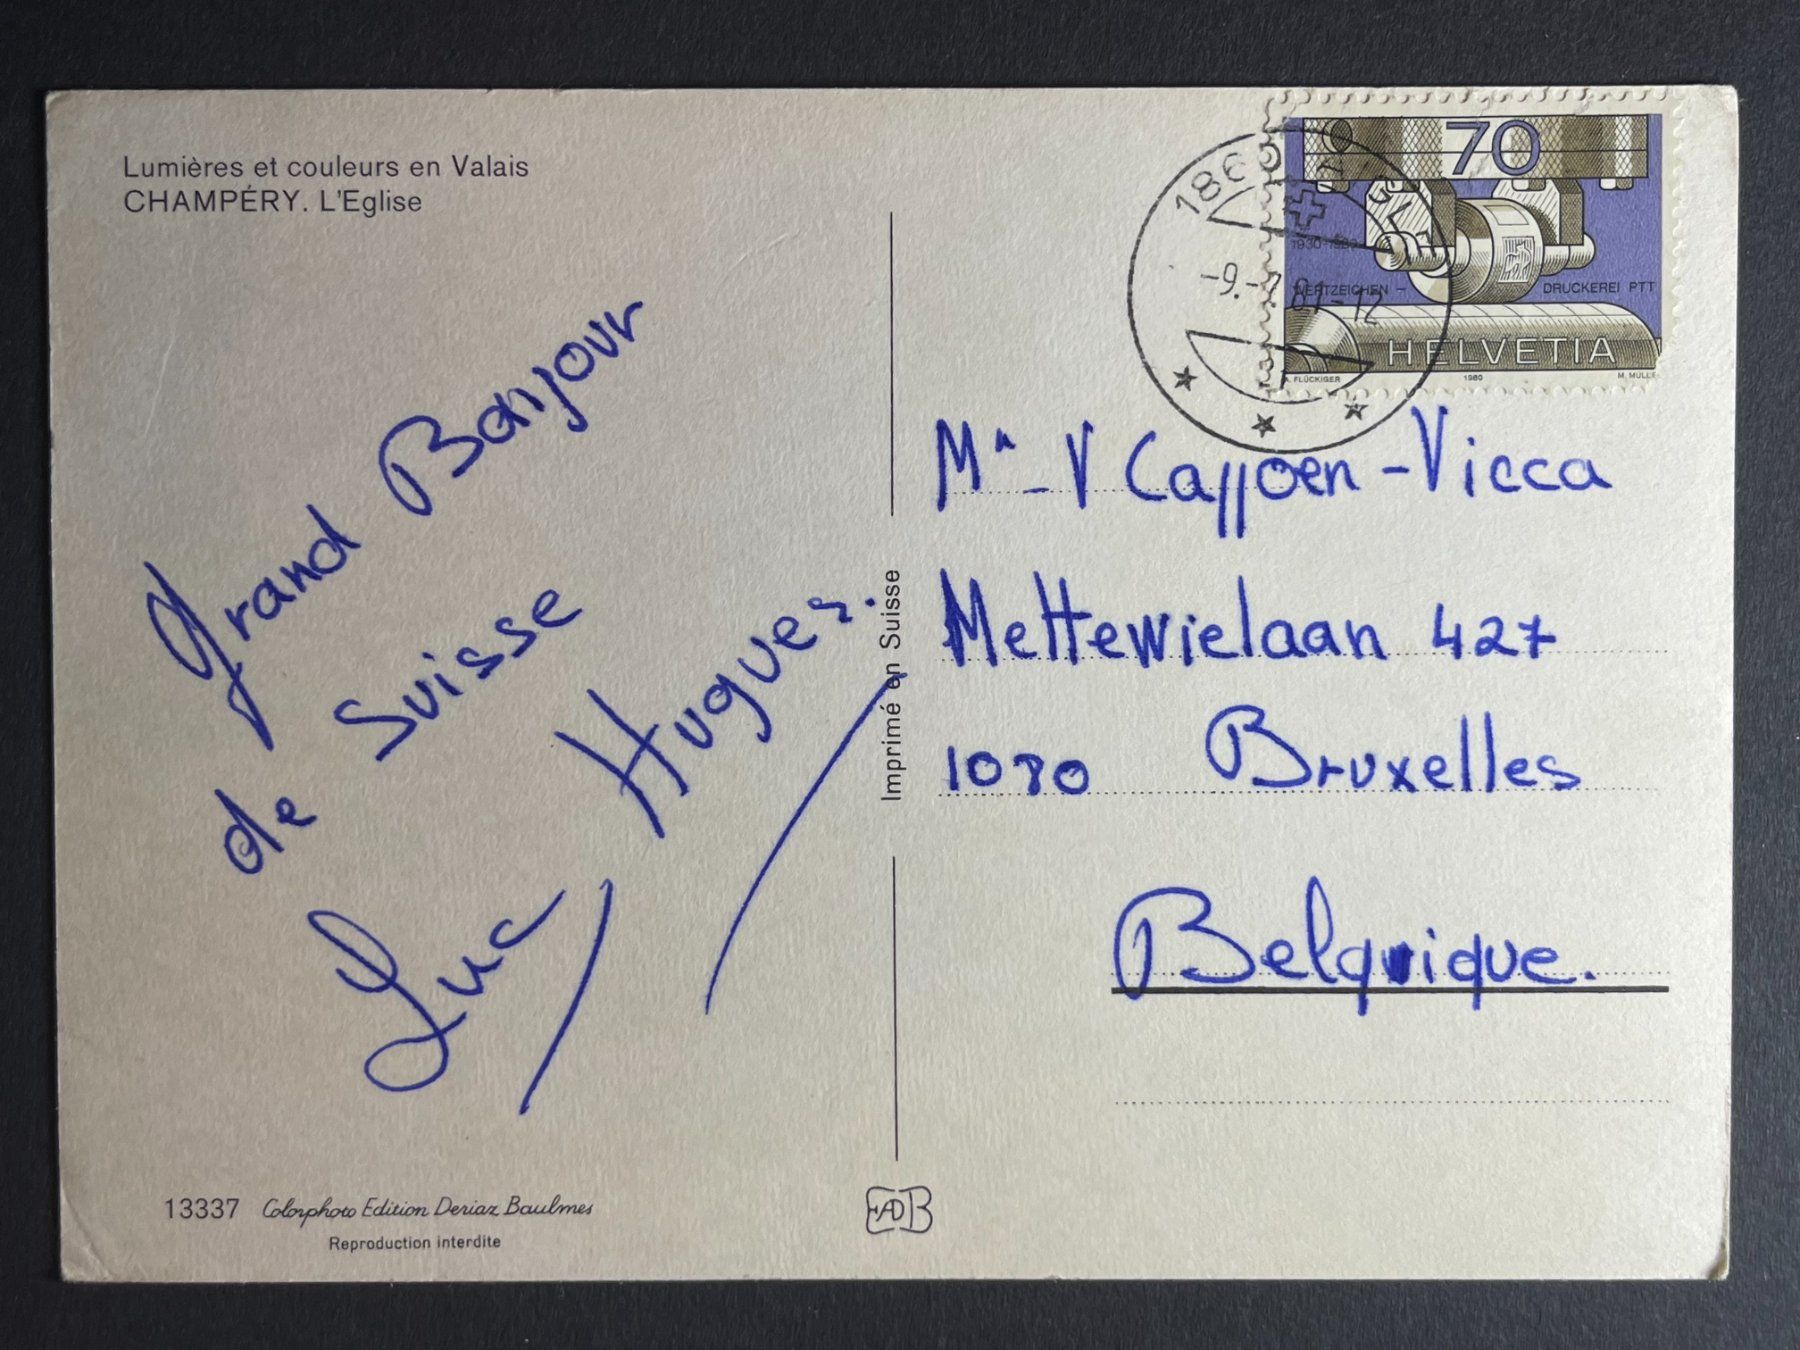 Lumières et couleurs en Valais
CHAMPÉRY. L'Eglise
Grand Bonjour
de Suisse
Luc Hugues.
13337 Colorphoto Edition Deriaz Baulmes
Reproduction interdite
Imprimé en Suisse
EADB
70
1930-1980
WERTZEICHEN - DRUCKEREI PTT
HELVETIA
A. FLÜCKIGER 1980 M. MÜLLE
1860 AIGLE
-9.- 81-12
V Cappoen-Vicca
Mettewielaan 427
1080 Bruxelles
Belgique.